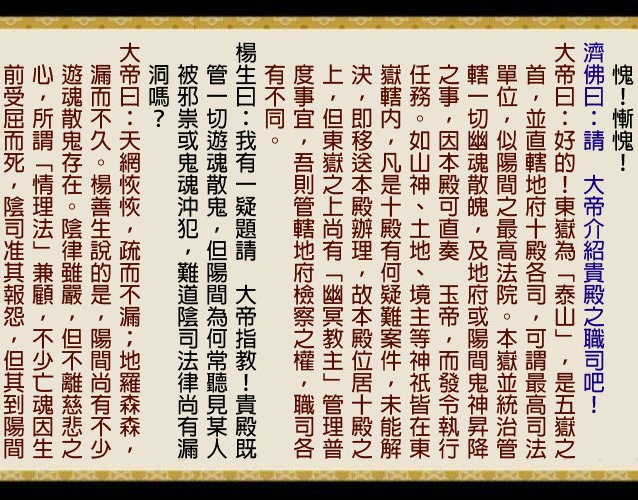 愧！慚愧！
濟佛曰：請　大帝介紹貴殿之職司吧！
大帝曰：好的！東嶽為「泰山」，是五嶽之
首，並直轄地府十殿各司，可謂最高司法
單位，似陽間之最高法院。本嶽並統治管
轄一切幽魂散魄，及地府或陽間鬼神昇降
之事，因本殿可直奏　玉帝，而發令執行
任務。如山神、土地、境主等神祇皆在東
嶽轄內，凡是十殿有何疑難案件，未能解
決，即移送本殿辦理，故本殿位居十殿之
上，但東嶽之上尚有「幽冥教主」管理普
度事宜，吾則管轄地府檢察之權，職司各
有不同。
楊生曰：我有一疑題請　大帝指教！貴殿既
管一切遊魂散鬼，但陽間為何常聽見某人
被邪祟或鬼魂沖犯，難道陰司法律尚有漏
洞嗎？
大帝曰：天網恢恢，疏而不漏；地羅森森，
漏而不久。楊善生說的是，陽間尚有不少
遊魂散鬼存在。陰律雖嚴，但不離慈悲之
心，所謂「情理法」兼顧，不少亡魂因生
前受屈而死，陰司准其報怨，但其到陽間